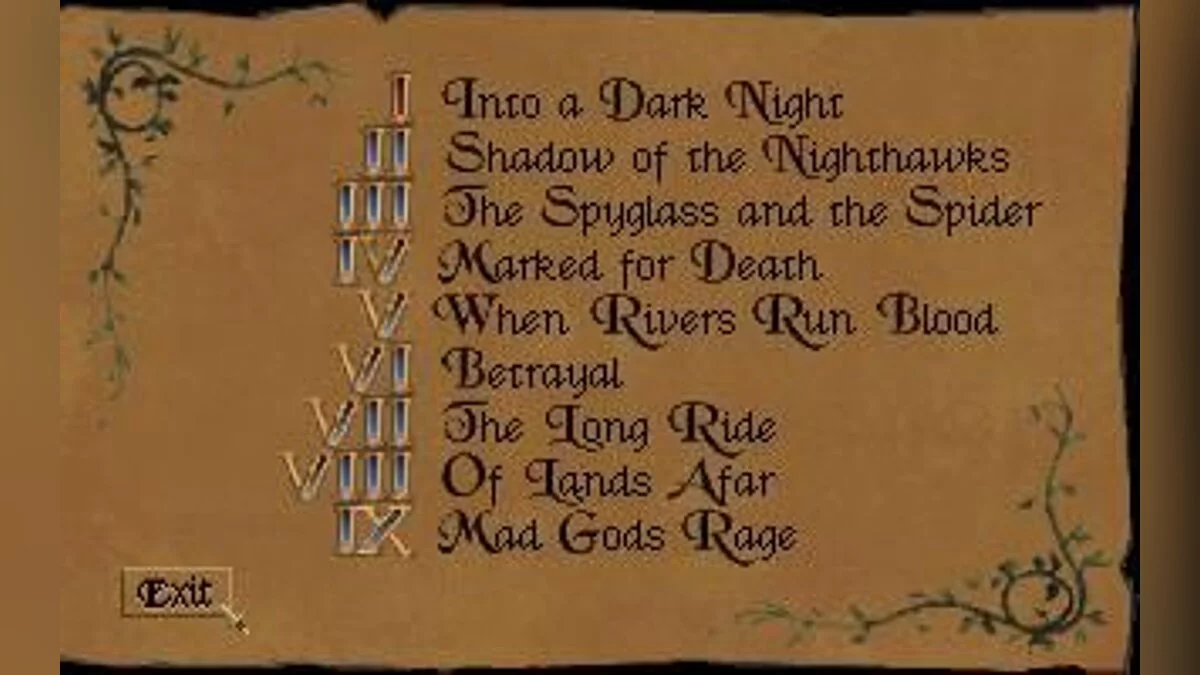 I Into a Dark Night
II Shadow of the Nighthawks
III The Spyglass and the Spider
IV Marked for Death
V When Rivers Run Blood
VI Betrayal
VII The Long Ride
VIII Of Lands Afar
IX Mad Gods Rage
Exit